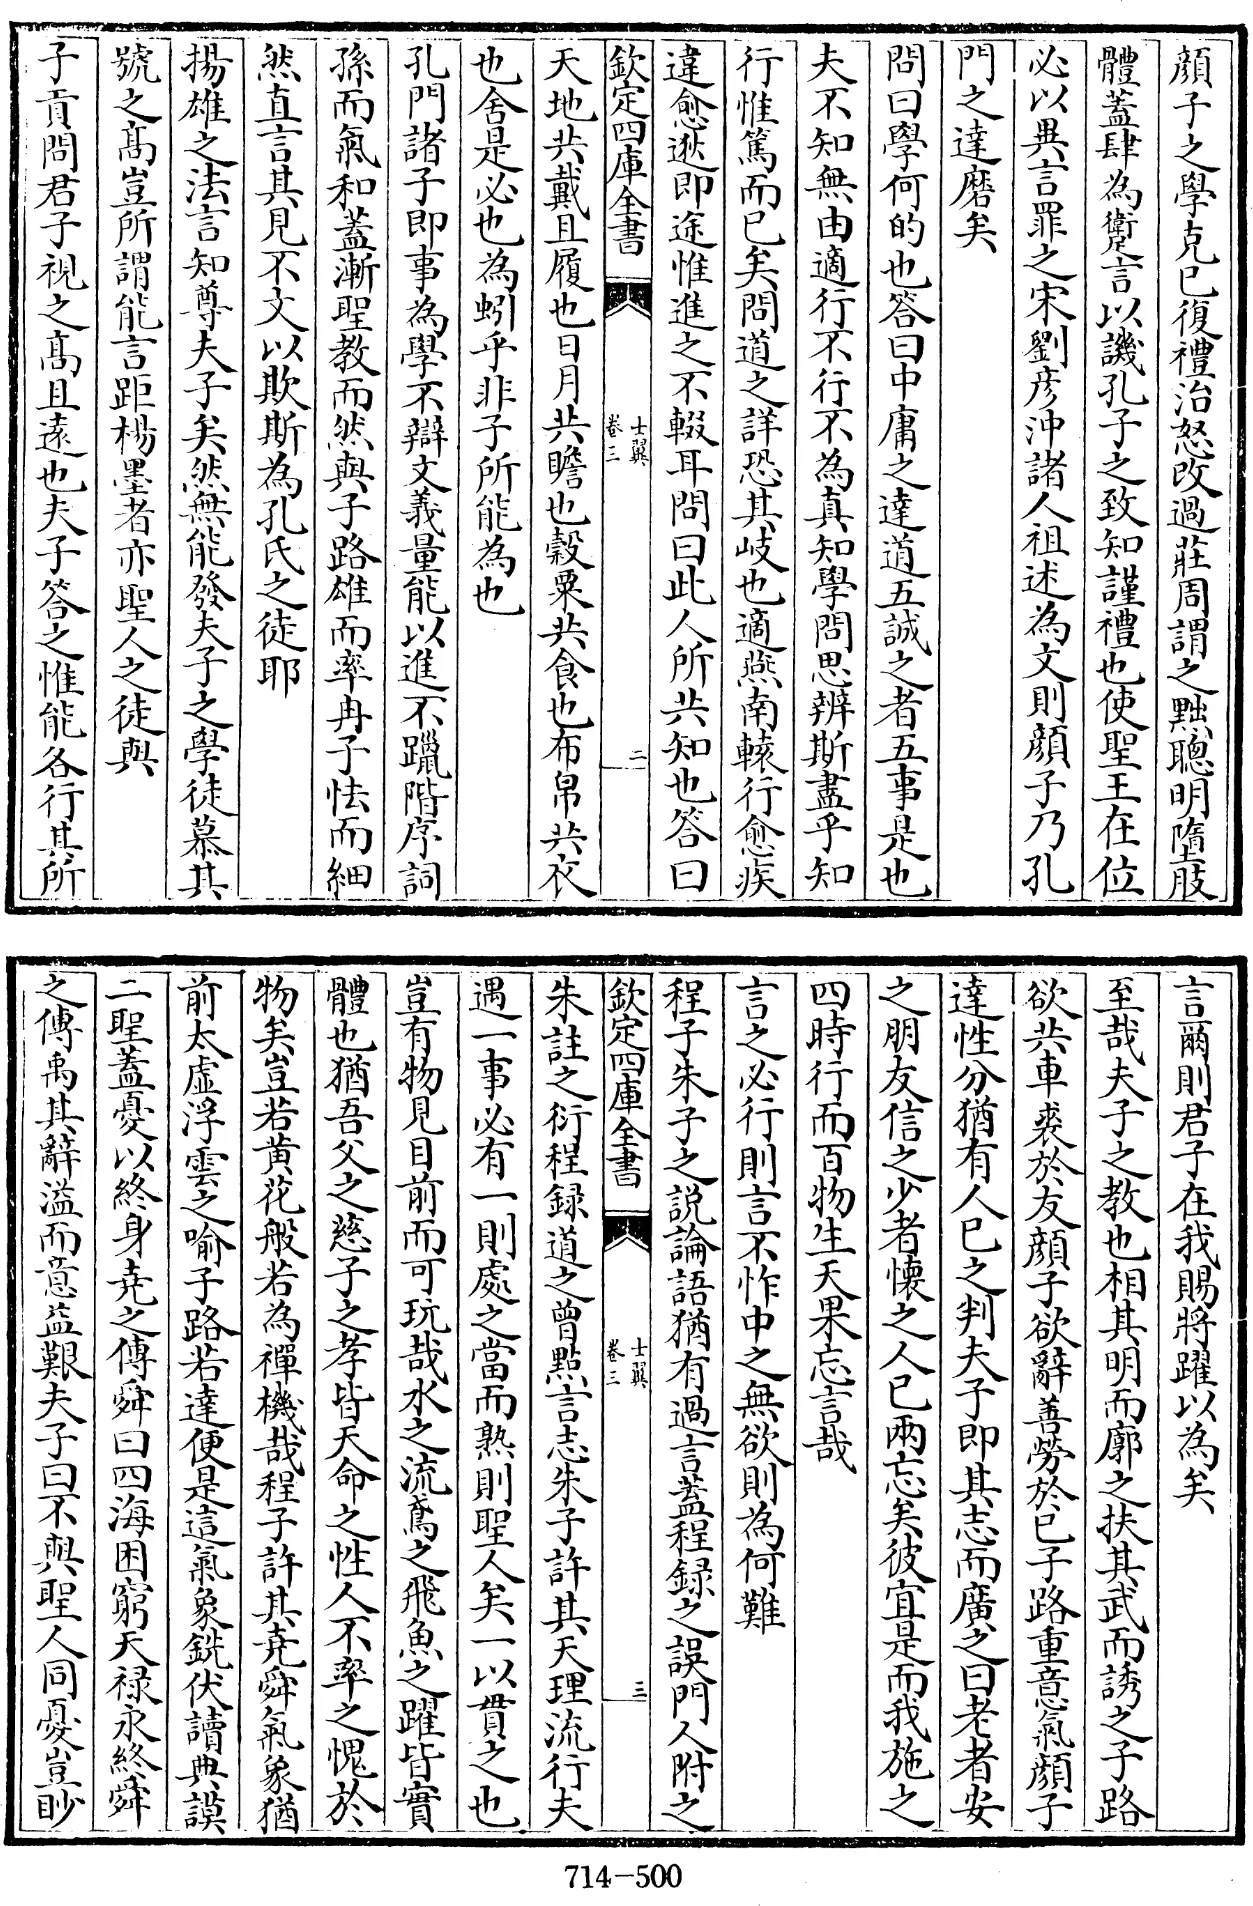 顔子之學克己復禮治怒改過莊周謂之黜聰明墮肢
體蓋肆為躗言以譏孔子之致知謹禮也使聖王在位
必以異言罪之宋劉彦沖諸人祖述為文則顔子乃孔
門之達磨矣
問曰學何的也答曰中庸之達道五誠之者五事是也
夫不知無由適行不行不為真知學問思辨斯盡乎知
行惟篤而已矣問道之詳恐其岐也適燕南轅行愈疾
違愈逖即途惟進之不輟耳問曰此人所共知也答曰
欽定四庫全書
士翼
卷三
二
天地共戴且履也日月共瞻也穀粟共食也布帛共衣
也舍是必也為蚓乎非子所能為也
孔門諸子即事為學不辯文義量能以進不躐階序詞
孫而氣和蓋漸聖教而然與子路雄而率冉子怯而細
然直言其見不文以欺斯為孔氏之徒耶
揚雄之法言知尊夫子矣然無能發夫子之學徒慕其
號之髙豈所謂能言距楊墨者亦聖人之徒與
子貢問君子視之髙且遠也夫子答之惟能各行其所
言爾則君子在我賜將躍以為矣
至哉夫子之教也相其明而廓之扶其武而誘之子路
欲共車裘於友顔子欲辭善勞於己子路重意氣顔子
達性分猶有人己之判夫子即其志而廣之曰老者安
之朋友信之少者懐之人已兩忘矣彼宜是而我施之
四時行而百物生天果忘言哉
言之必行則言不怍中之無欲則為何難
程子朱子之説論語猶有過言蓋程録之誤門人附之
欽定四庫全書
士翼
卷三
三
朱註之衍程録道之曾點言志朱子許其天理流行夫
遇一事必有一則處之當而熟則聖人矣一以貫之也
豈有物見目前而可玩哉水之流鳶之飛魚之躍皆實
體也猶吾父之慈子之孝皆天命之性人不率之愧於
物矣豈若黄花般若為禪機哉程子許其堯舜氣象猶
前太虚浮雲之喻子路若達便是這氣象銑伏讀典謨
二聖蓋憂以終身堯之傳舜曰四海困窮天禄永終舜
之傳禹其辭溢而意益艱夫子曰不與聖人同憂豈眇
714-500